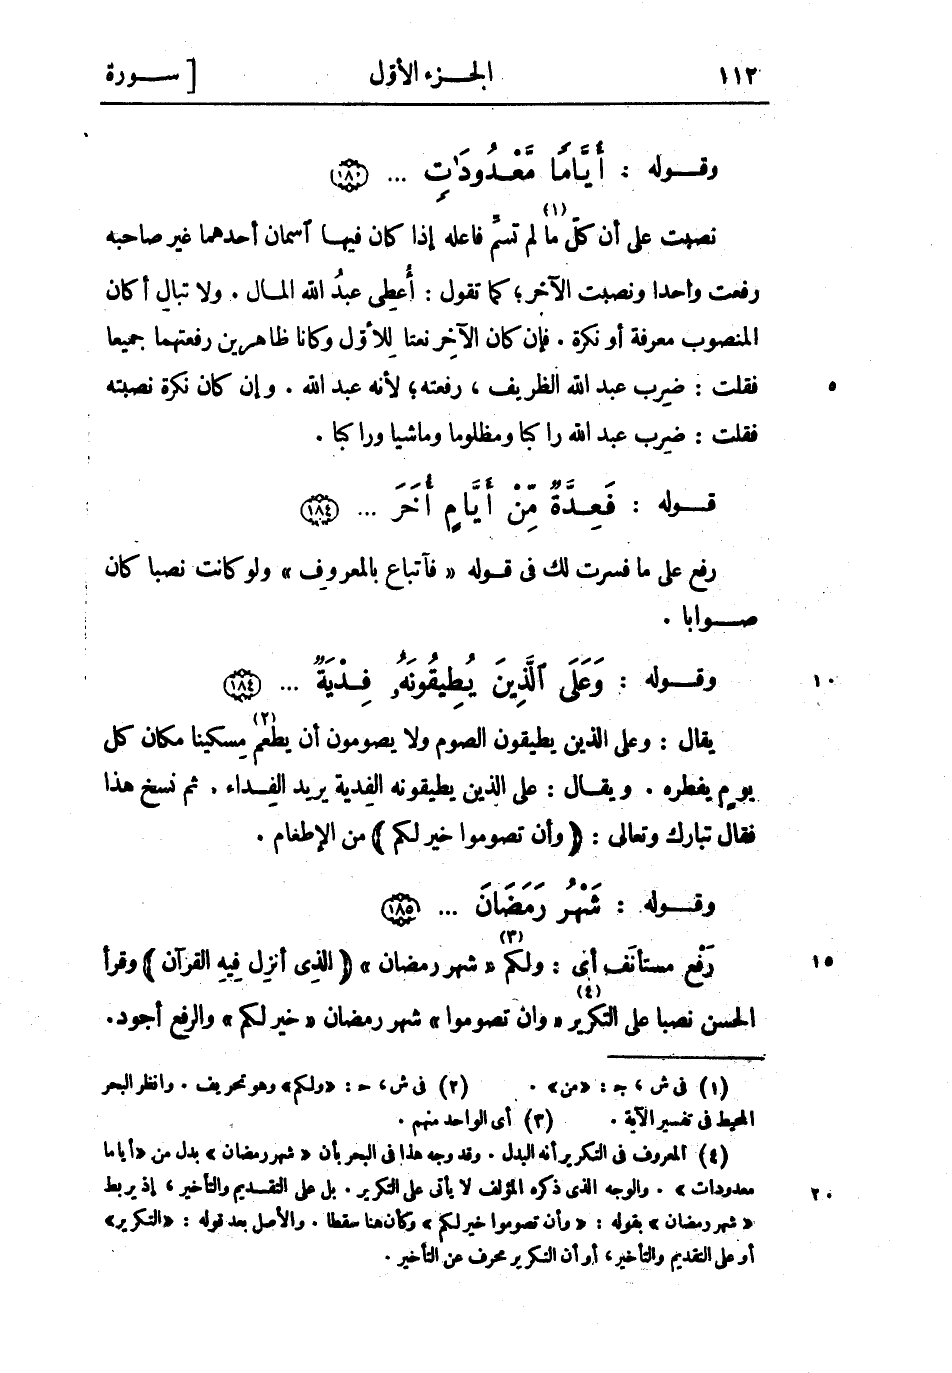 ١١٢ الجــزء الأوّل [ ســورة
وقــوله : أَيَّامًا مَّعْدُودَاتٍ ... ١٨٤
نصبت على أن كلّ ما (١) لم تسمّ فاعله إذا كان فيهـا ٱسمان أحدهما غير صاحبه
رفعت واحدا ونصبت الآخر؛ كما تقول : أُعطِى عبدُ الله المـال . ولا تبالِ أكان
المنصوب معرفة أو نكرة . فإن كان الآخِر نعتا لِلأوّل وكانا ظاهرين رفعتهما جميعا
فقلت : ضرِب عبد الله الظريف ، رفعته؛ لأنه عبد الله . وإن كان نكرة نصبته ٥
فقلت : ضرِب عبد الله راكبا ومظلوما وماشيا وراكبا .
قــوله : فَعِـدَّةٌ مِّنْ أَيَّامٍ أُخَرَ ... ١٨٤
رفع على ما فسرت لك فى قــوله « فٱتباع بالمعروف » ولو كانت نصبا كان
صــوابا .
وقــوله : وَعَلَى ٱلَّذِينَ يُطِيقُونَهُۥ فِـدْيَةٌ ... ١٨٤ ١٠
يقال : وعلى الذين يطيقون الصوم ولا يصومون أن يطعم (٢) مِسكينا مكان كل
يومٍ يفطره . ويقـال : على الذين يطيقونه الفدية يريد الفـداء . ثم نسخ هذا
فقال تبارك وتعالى : ﴿ وأن تصوموا خير لكم ﴾ من الإطعام .
وقــوله : شَهْرُ رَمَضَانَ ... ١٨٥
رَفْع مستأنَف أى : ولكم (٣) « شهر رمضان » ﴿ الذى أنزِل فِيهِ القرآن ﴾ وقرأ ١٥
الحسن نصبا على التكرير (٤) « وان تصوموا » شهر رمضان « خير لكم » والرفع أجود.
(١) فى ش ، جـ : «من» . (٢) فى ش ، حـ : «ولكم» وهو تحريف . وانظر البحر
المحيط فى تفسير الآية . (٣) أى الواحد منهم .
(٤) ٱلمعروف فى التكرير أنه البدل . وقد وجه هذا فى البحر بأن « شهر رمضان » بدل من «أياما
معدودات » . والوجه الذى ذكره المؤلف لا يأتى على التكرير . بل على التقـديم والتأخير ، إذ يربط ٢٠
« شهر رمضان » بقوله : « وأن تصوموا خير لكم » وكأن هنا سقطا . والأصل بعد قوله : «التكرير»
أو على التقديم والتأخير، أو أن التكرير محرف عن التأخير .